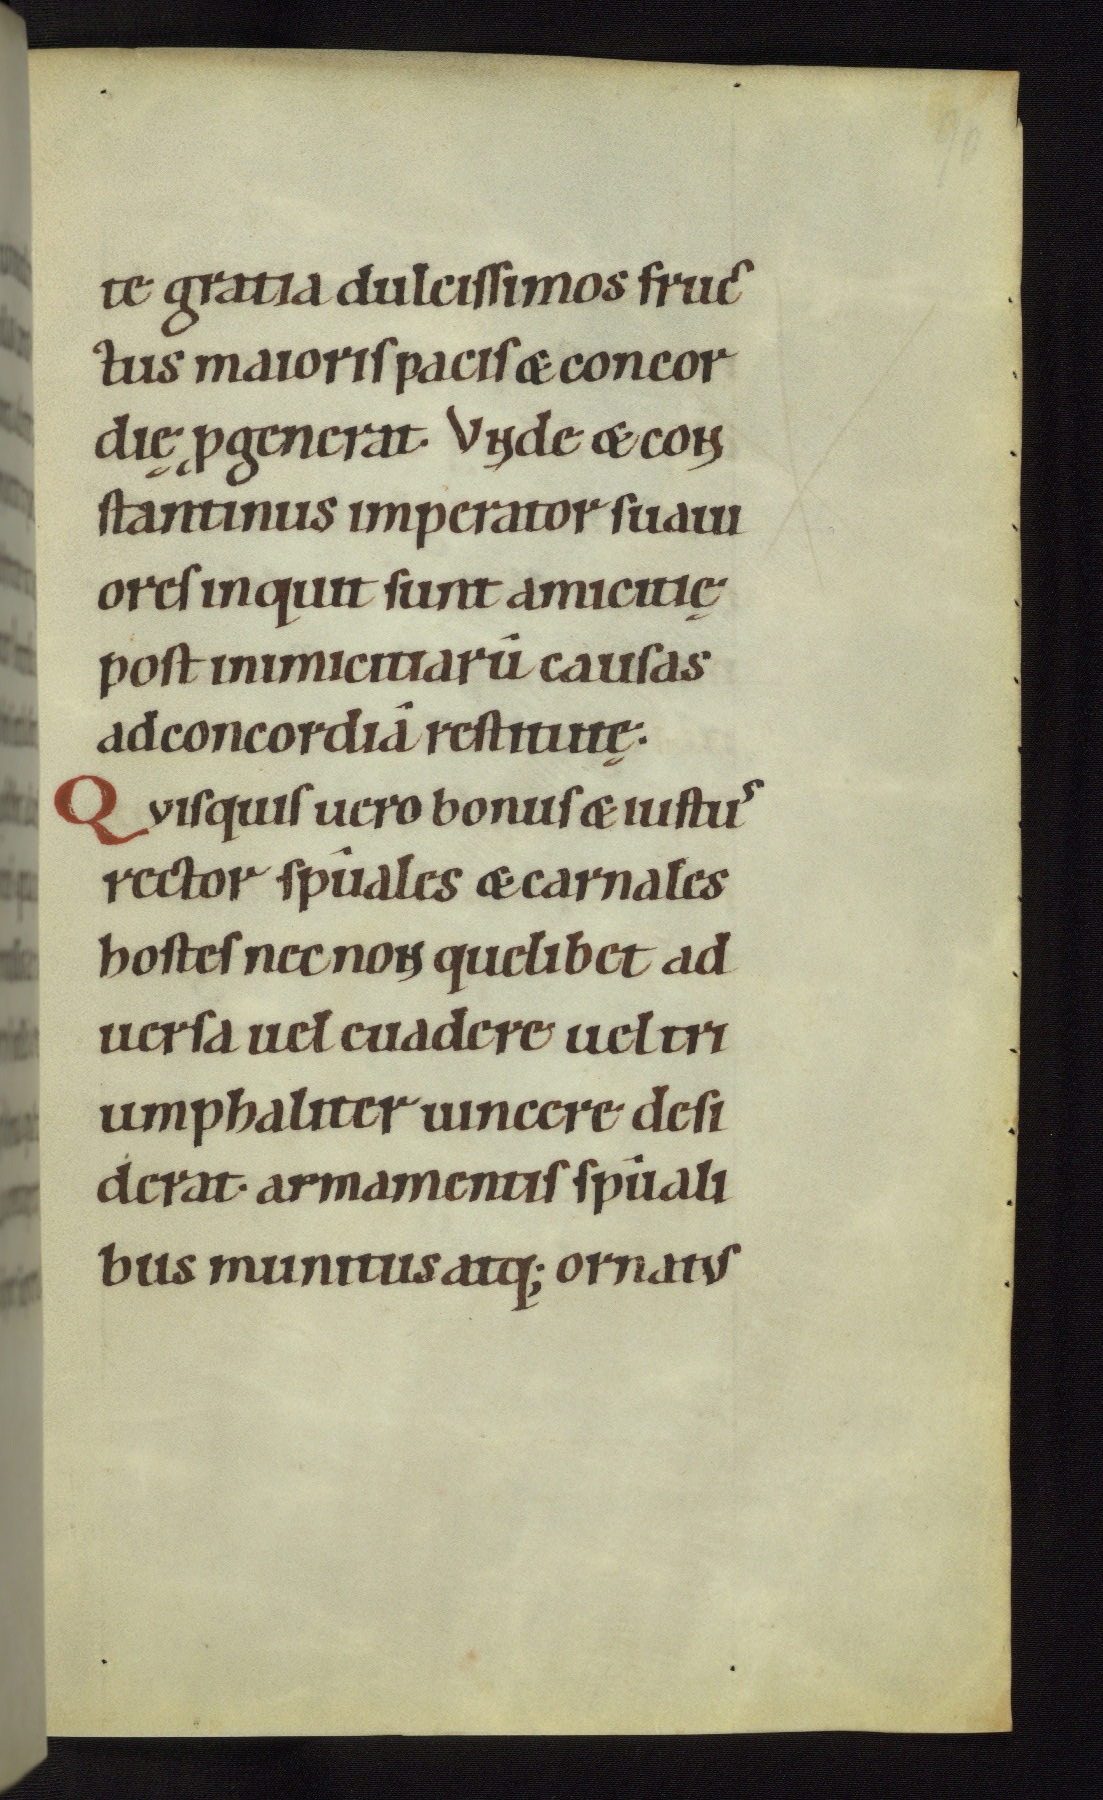 90
te gratia dulcissimos fruc
tus maioris pacis & concor
dię p̨generat. Vnde & con
stantinus imperator suaui
ores inquit sunt amicitię
post inimicitiarū causas
ad concordiā restitutę.
Qvisquis uero bonus & iustus
rector sp̄uales & carnales
hostes nec non quelibet ad
uersa uel euadere uel tri
umphaliter uincere desi
derat. armamentis sp̄uali
bus munitus atq; ornatvs